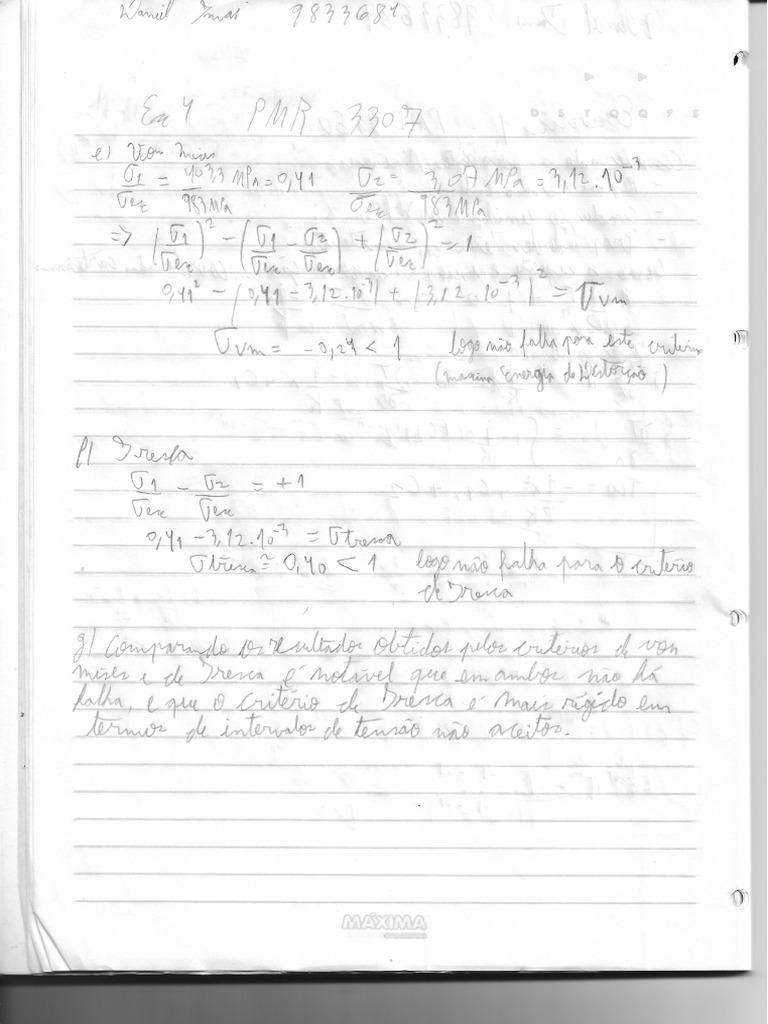 Daniel 9833681
Ex 4 PMR 3307
e) Von Mises
σ1/σex = 403,3 MPa/983 MPa = 0,41 σ2/σex = 3,07 MPa/983 MPa = 3,12.10^-3
=> (σ1/σex)^2 - (σ1/σex - σ2/σex) + (σ2/σex)^2 = 1
0,41^2 - (0,41 - 3,12.10^-3) + (3,12.10^-3)^2 = σvm
σvm = -0,24 < 1 logo não falha para este critério
(máxima Energia de Distorção)
f) Tresca
σ1/σex - σ2/σex = +1
0,41 - 3,12.10^-3 = σtresca
σtresca ≅ 0,40 < 1 logo não falha para o critério
de Tresca
g) Comparando os resultados obtidos pelos critérios de von
mises e de Tresca é notável que em ambos não há
falha, e que o critério de Tresca é mais rígido em
termos de intervalos de tensão não aceitos.
MÁXIMA